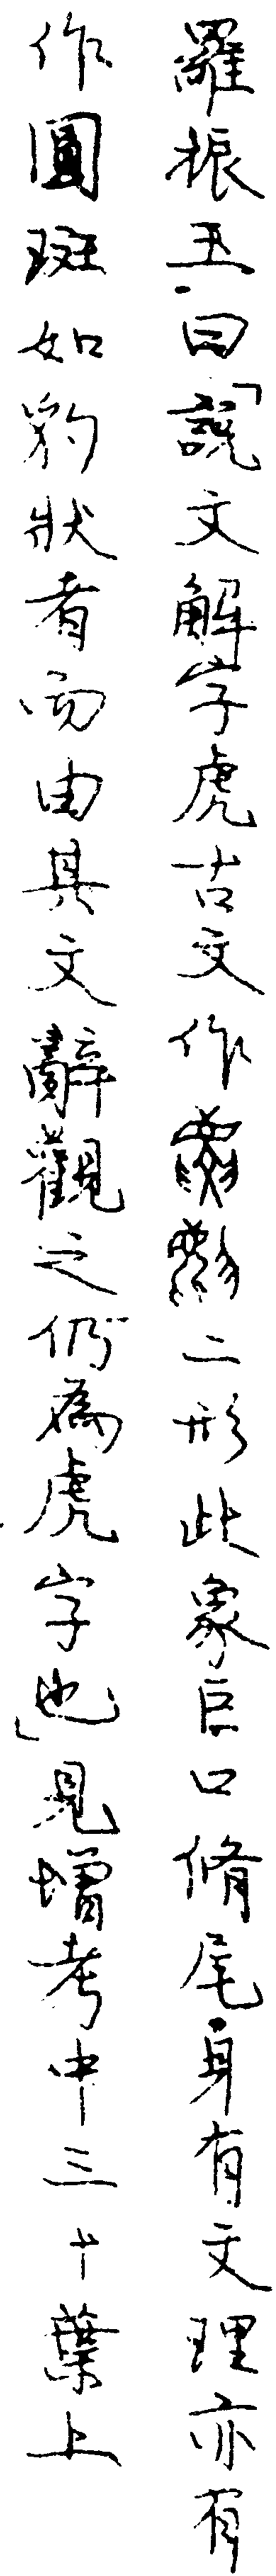 羅振玉曰「說文解字虎古文作二形此象巨口脩尾身有文理亦有
作圓斑如豹狀者而由其文辭觀之仍為虎字也」見增考中三十葉上